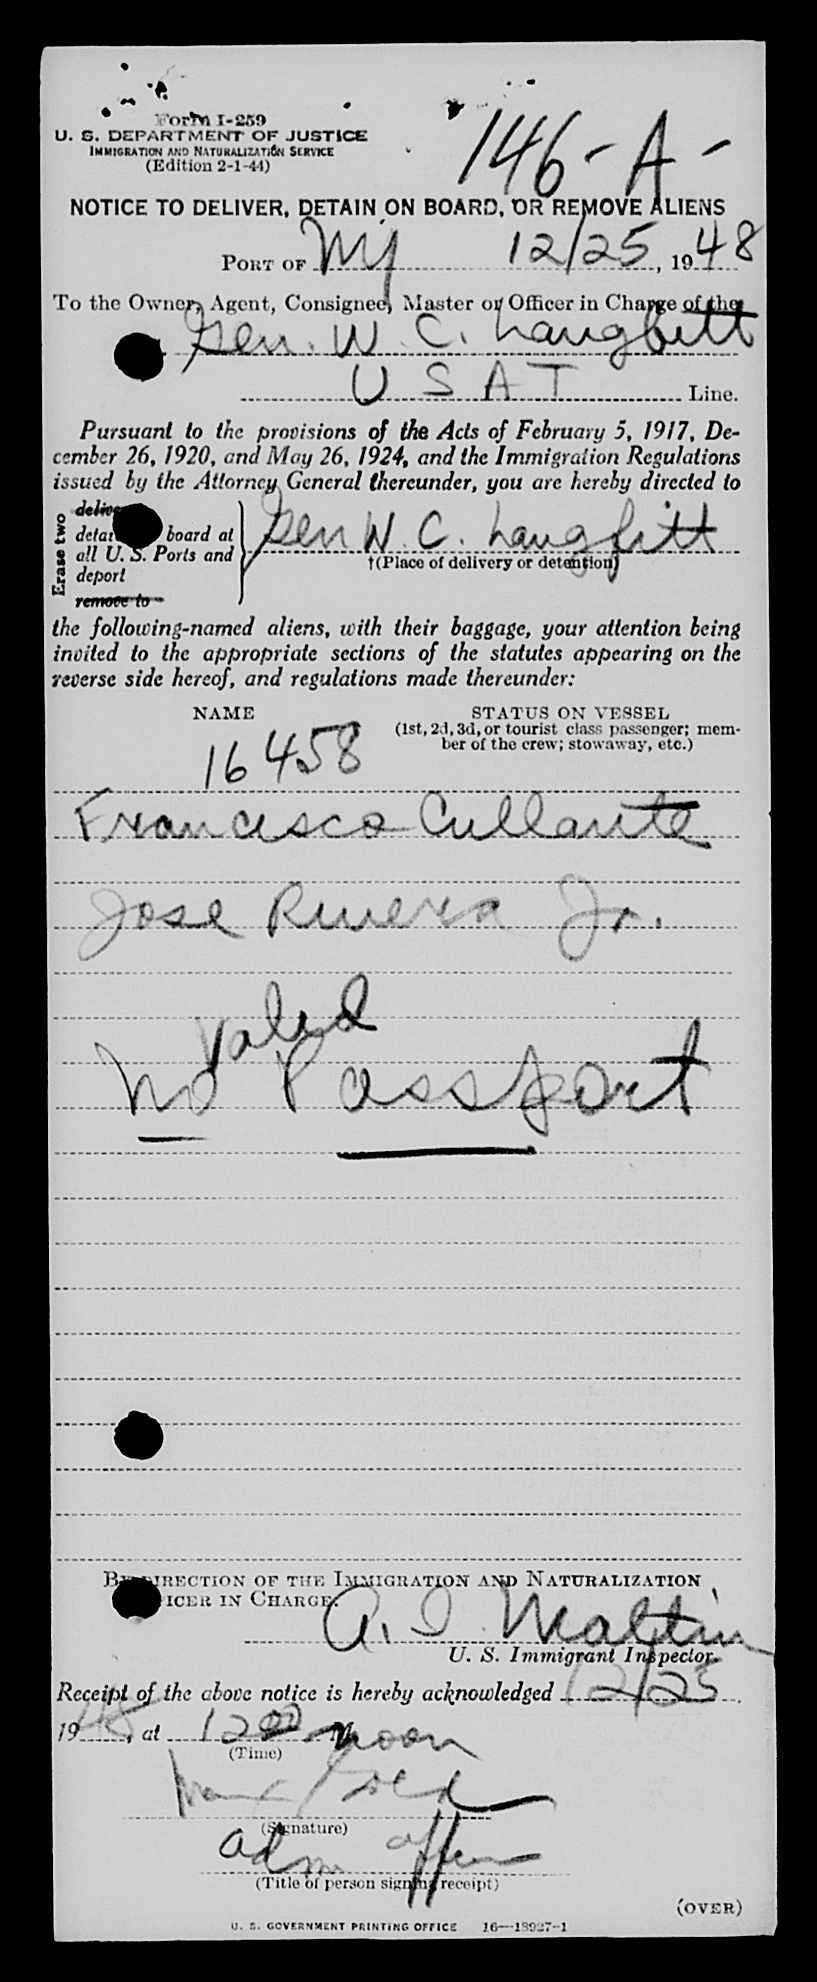 Form I-259
U. S. DEPARTMENT OF JUSTICE
IMMIGRATION AND NATURALIZATION SERVICE
(Edition 2-1-44)
146-A-
NOTICE TO DELIVER, DETAIN ON BOARD, OR REMOVE ALIENS
PORT OF NY 12/25, 1948
To the Owner, Agent, Consignee, Master or Officer in Charge of the
Gen. W. C. Langfitt
U S A T Line.
Pursuant to the provisions of the Acts of February 5, 1917, De-
cember 26, 1920, and May 26, 1924, and the Immigration Regulations
issued by the Attorney General thereunder, you are hereby directed to
Erase two
deliver
detain board at
all U. S. Ports and
deport
remove to
Gen W. C. Langfitt
†(Place of delivery or detention)
the following-named aliens, with their baggage, your attention being
invited to the appropriate sections of the statutes appearing on the
reverse side hereof, and regulations made thereunder:
NAME STATUS ON VESSEL
(1st, 2d, 3d, or tourist class passenger; mem-
ber of the crew; stowaway, etc.)
16458
Francisco Cullante
Jose Rivera Jr.
Valid
No Passport
BY DIRECTION OF THE IMMIGRATION AND NATURALIZATION
OFFICER IN CHARGE.
A. I.
U. S. Immigrant Inspector.
Receipt of the above notice is hereby acknowledged 12/25,
1948, at 12 00 M. noon
(Time)
(Signature)
Adm officer
(Title of person signing receipt)
(OVER)
U. S. GOVERNMENT PRINTING OFFICE 16—13927-1